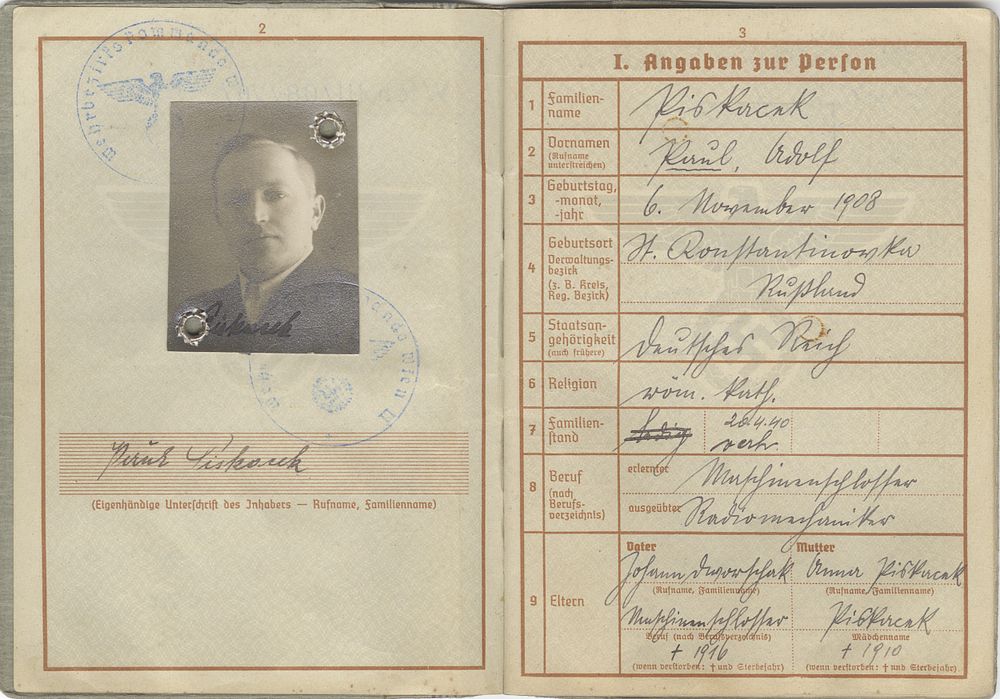 2
Wehrbezirkskommando
Wien
Piskacek
Paul Piskacek
(Eigenhändige Unterschrift des Inhabers — Rufname, Familienname)
3
I. Angaben zur Person
1 Familien-
name
Piskacek
2 Vornamen
(Rufname
unterstreichen)
Paul, Adolf
3 Geburtstag,
-monat,
-jahr
6. November 1908
4 Geburtsort
Verwaltungs-
bezirk
(z. B. Kreis,
Reg. Bezirk)
St. Konstantinovka
Rußland
5 Staatsan-
gehörigkeit
(auch frühere)
Deutsches Reich
6 Religion
röm. kath.
7 Familien-
stand
ledig
20.4.40
verh.
8 Beruf
(nach
Berufs-
verzeichnis)
erlernter
Maschinenschlosser
ausgeübter
Radiomechaniker
9 Eltern
Vater
Johann Dworschak
(Rufname, Familienname)
Maschinenschlosser
Beruf (nach Berufsverzeichnis)
† 1916
(wenn verstorben: † und Sterbejahr)
Mutter
Anna Piskacek
(Rufname, Familienname)
Piskacek
Mädchenname
† 1910
(wenn verstorben: † und Sterbejahr)